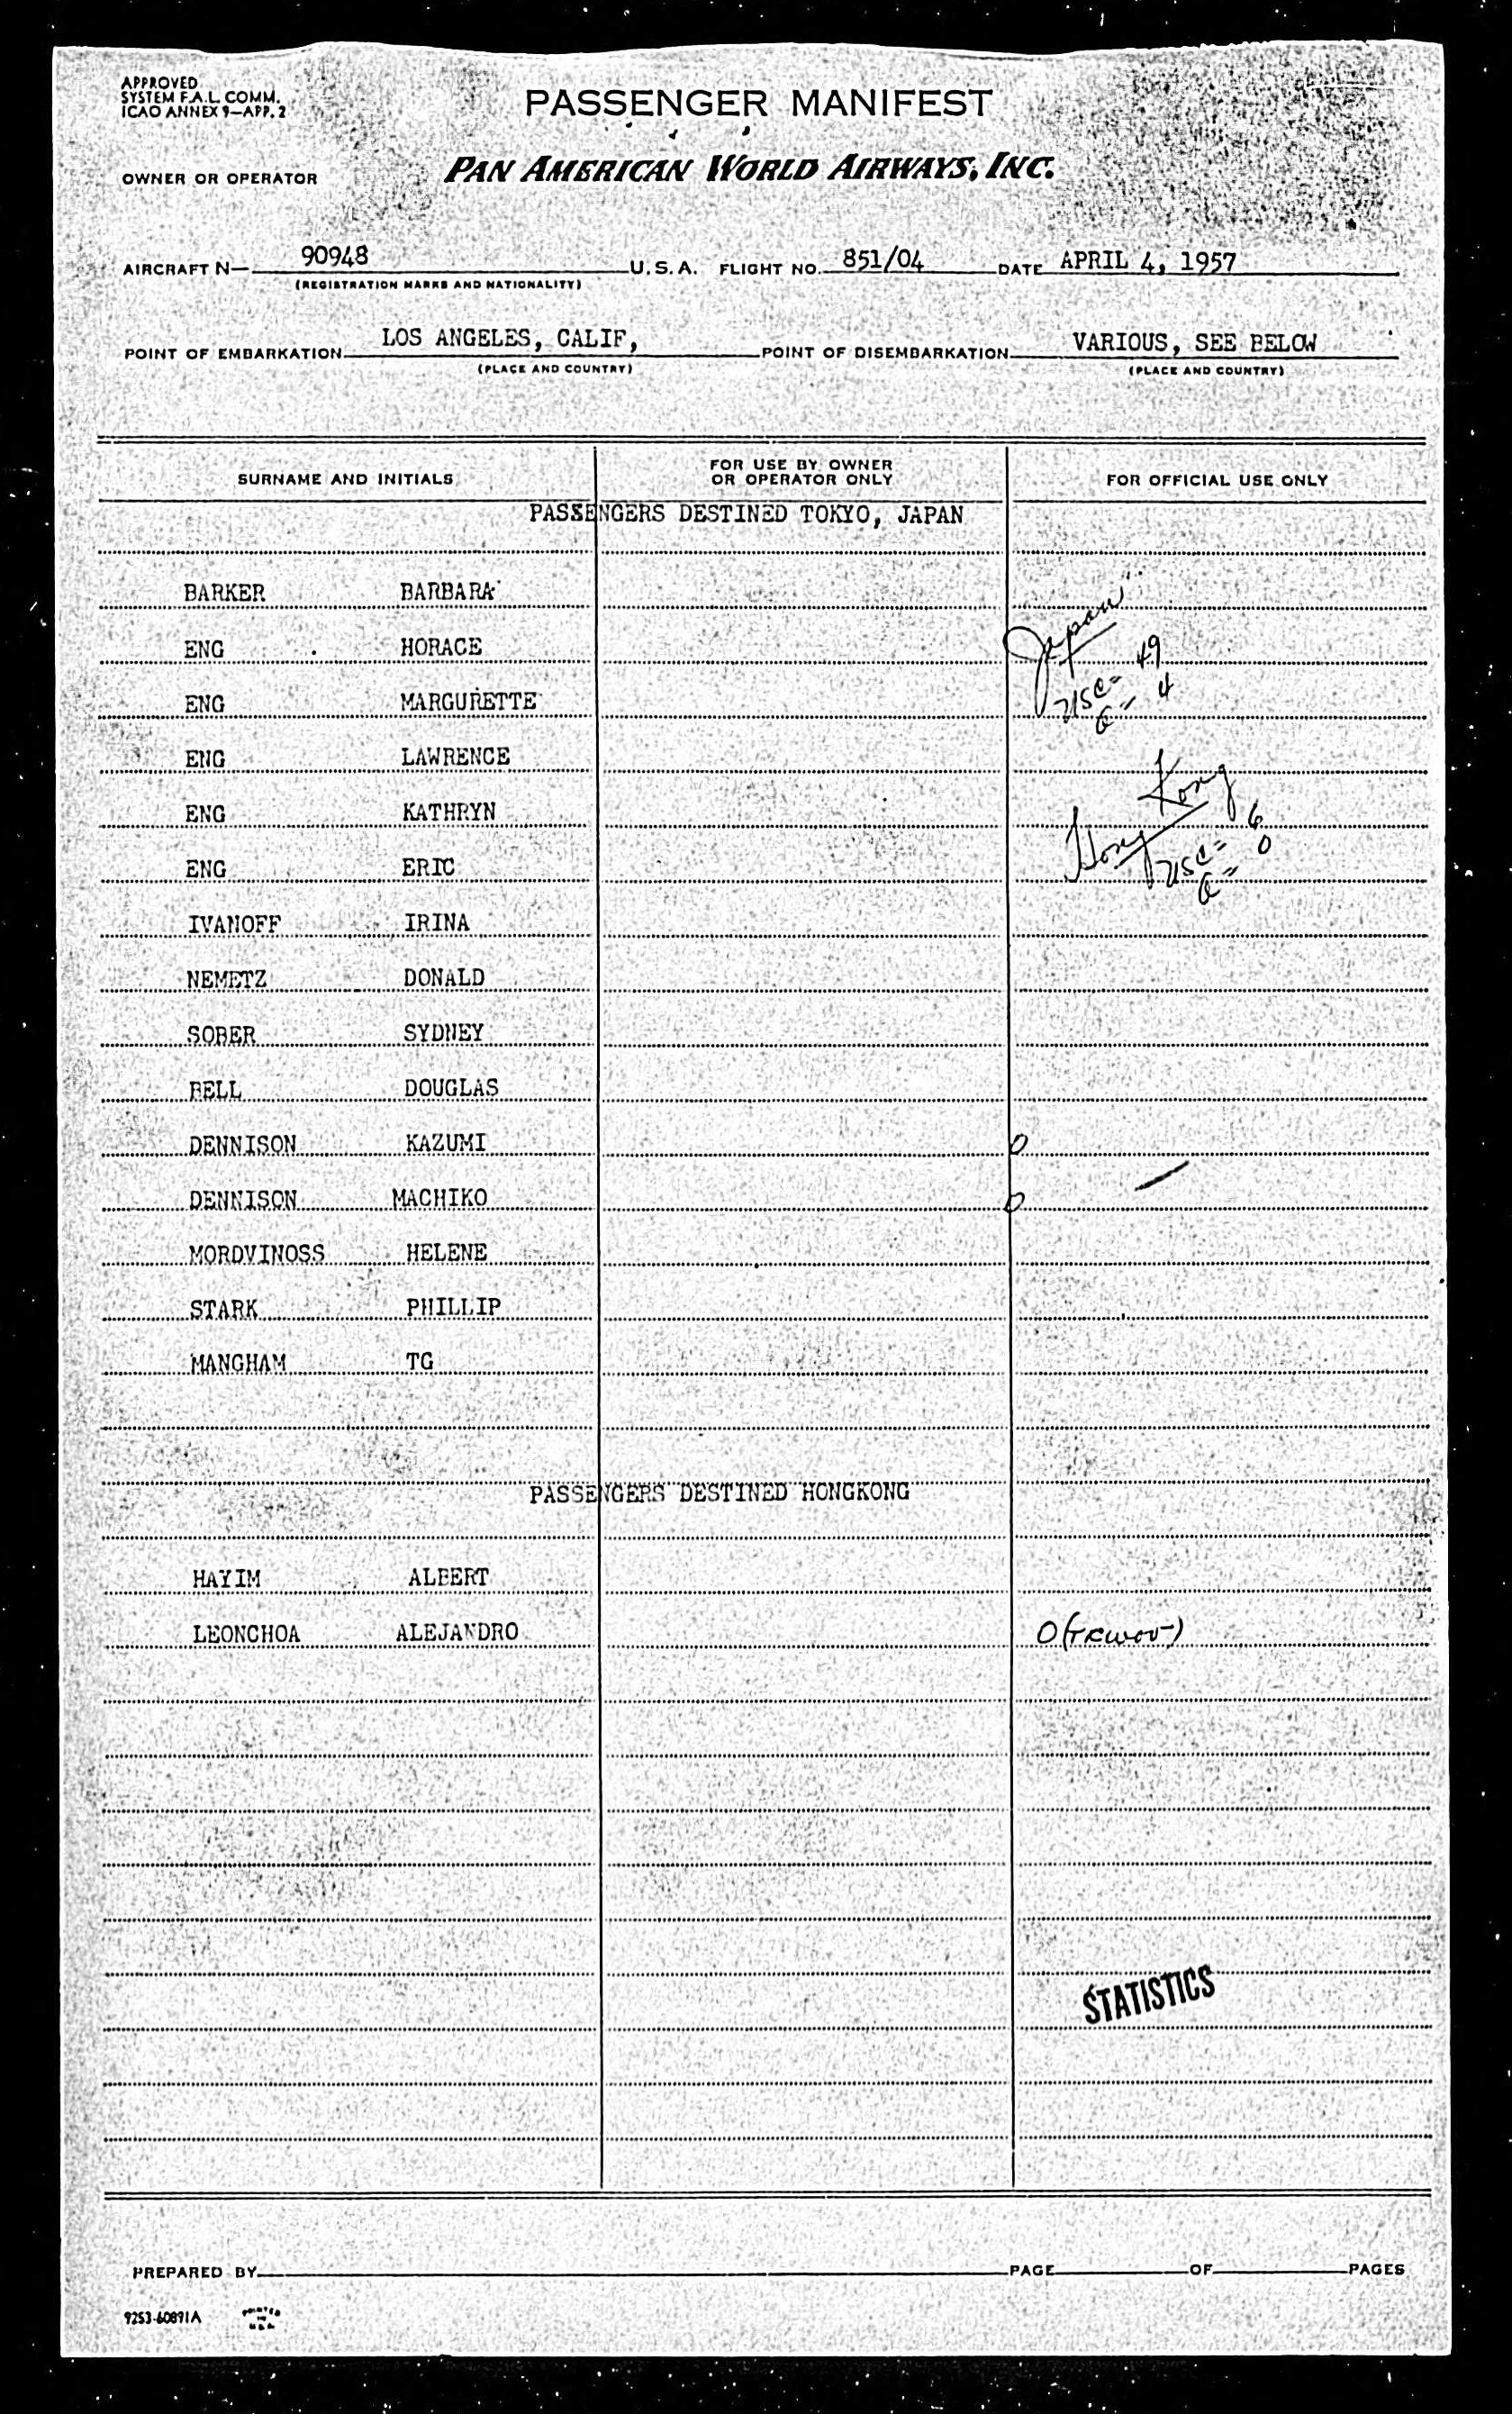 APPROVED
SYSTEM F.A.L. COMM.
ICAO ANNEX 9—APP. 2
PASSENGER MANIFEST
OWNER OR OPERATOR
PAN AMERICAN WORLD AIRWAYS, INC.
AIRCRAFT N— 90948 U.S.A. FLIGHT NO. 851/04 DATE APRIL 4, 1957
(REGISTRATION MARKS AND NATIONALITY)
POINT OF EMBARKATION LOS ANGELES, CALIF, POINT OF DISEMBARKATION VARIOUS, SEE BELOW
(PLACE AND COUNTRY) (PLACE AND COUNTRY)
SURNAME AND INITIALS FOR USE BY OWNER OR OPERATOR ONLY FOR OFFICIAL USE ONLY
PASSENGERS DESTINED TOKYO, JAPAN
BARKER BARBARA
Japan
ENG HORACE
USC= 49
ENG MARGURETTE
a= 4
ENG LAWRENCE
Hong Kong
ENG KATHRYN
USC= 6
ENG ERIC
a= 0
IVANOFF IRINA
NEMETZ DONALD
SOBER SYDNEY
BELL DOUGLAS
DENNISON KAZUMI 0
DENNISON MACHIKO 0
MORDVINOSS HELENE
STARK PHILLIP
MANGHAM TG
PASSENGERS DESTINED HONGKONG
HAYIM ALBERT
LEONCHOA ALEJANDRO
STATISTICS
PREPARED BY PAGE OF PAGES
9253-60891A
PRINTED
IN
U.S.A.